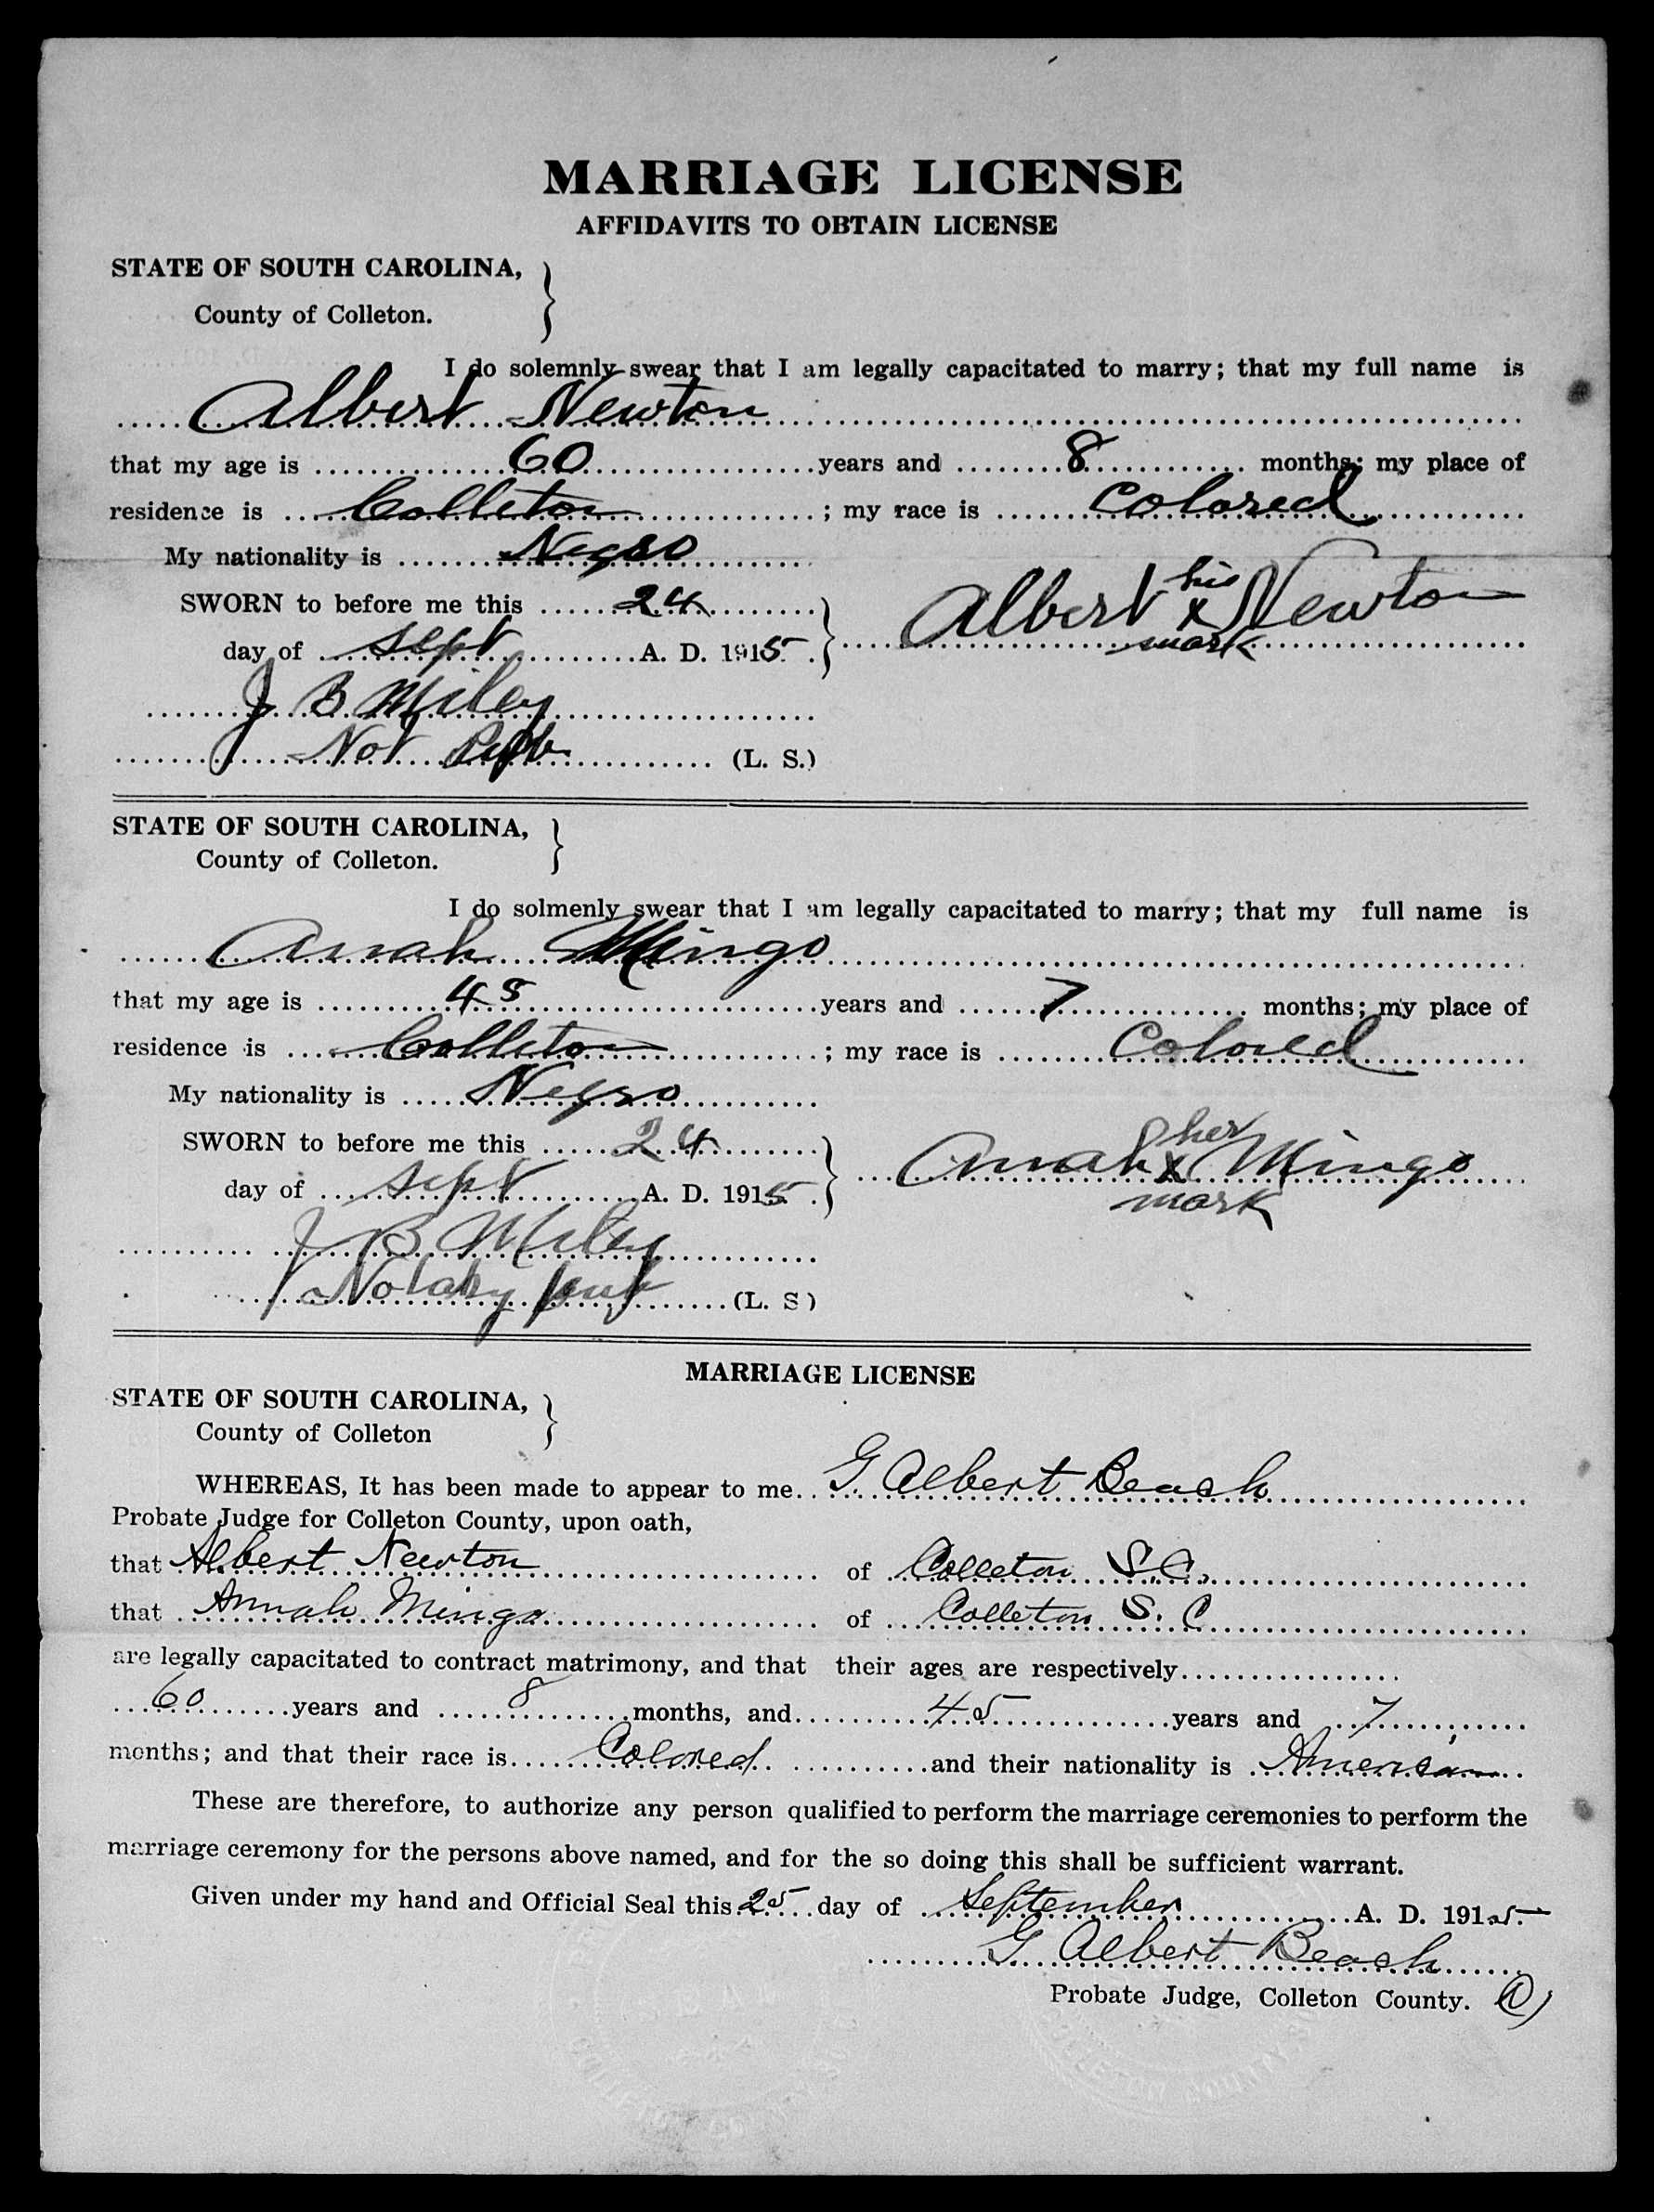 MARRIAGE LICENSE
AFFIDAVITS TO OBTAIN LICENSE
STATE OF SOUTH CAROLINA,
County of Colleton.
I do solemnly swear that I am legally capacitated to marry; that my full name is
Albert Newton
that my age is 60 years and 8 months; my place of
residence is Colleton ; my race is Colored
My nationality is Negro
SWORN to before me this 24
day of Sept A. D. 1915.
Albert his x mark Newton
J B Miley
Not Pub (L. S.)
STATE OF SOUTH CAROLINA,
County of Colleton.
I do solmenly swear that I am legally capacitated to marry; that my full name is
Annah Mingo
that my age is 45 years and 7 months; my place of
residence is Colleton ; my race is Colored
My nationality is Negro
SWORN to before me this 24
day of Sept A. D. 1915.
Annah her x mark Mingo
J B Miley
Notary Pub (L. S)
MARRIAGE LICENSE
STATE OF SOUTH CAROLINA,
County of Colleton
WHEREAS, It has been made to appear to me G. Albert Beach
Probate Judge for Colleton County, upon oath,
that Albert Newton of Colleton S.C.
that Annah Mingo of Colleton S. C
are legally capacitated to contract matrimony, and that their ages are respectively
60 years and 8 months, and 45 years and 7
months; and that their race is Colored and their nationality is American
These are therefore, to authorize any person qualified to perform the marriage ceremonies to perform the
marriage ceremony for the persons above named, and for the so doing this shall be sufficient warrant.
Given under my hand and Official Seal this 25 day of September A. D. 1915.
G. Albert Beach
Probate Judge, Colleton County.